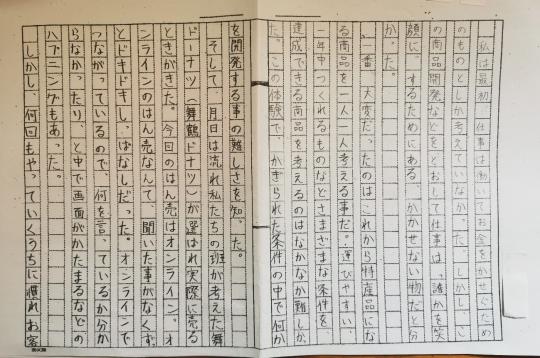 私は最初、仕事は働いてお金をかせぐため
のものとしか考えていなかった。しかし、こ
の商品開発などをとおして仕事は、誰かを笑
顔に、するためにある、かかせない物だと分
かった。
一番、大変だったのはこれから特産品にな
る商品を一人一人考える事だ。運びやすい、
一年中つくれるものなどさまざまな条件を、
達成できる商品を考えるのはなかなか難しか
た。この体験で、かぎられた条件の中で何か
を開発する事の難しさを知った。
そして、月日は流れ私たちの班が考えた舞
ドーナツ(舞鶴ドナツ)が選ばれ実際に売る
ときがきた。今回のはん売はオンライン。オ
ンラインのはん売なんて、聞いた事がなくず
っとドキドキしっぱなしだった。オンラインで
つながっているので、何を言っているか分か
らなかったり、と中で画面がかたまるなどの
ハプニングもあった。
しかし、何回もやっていくうちに慣れお客